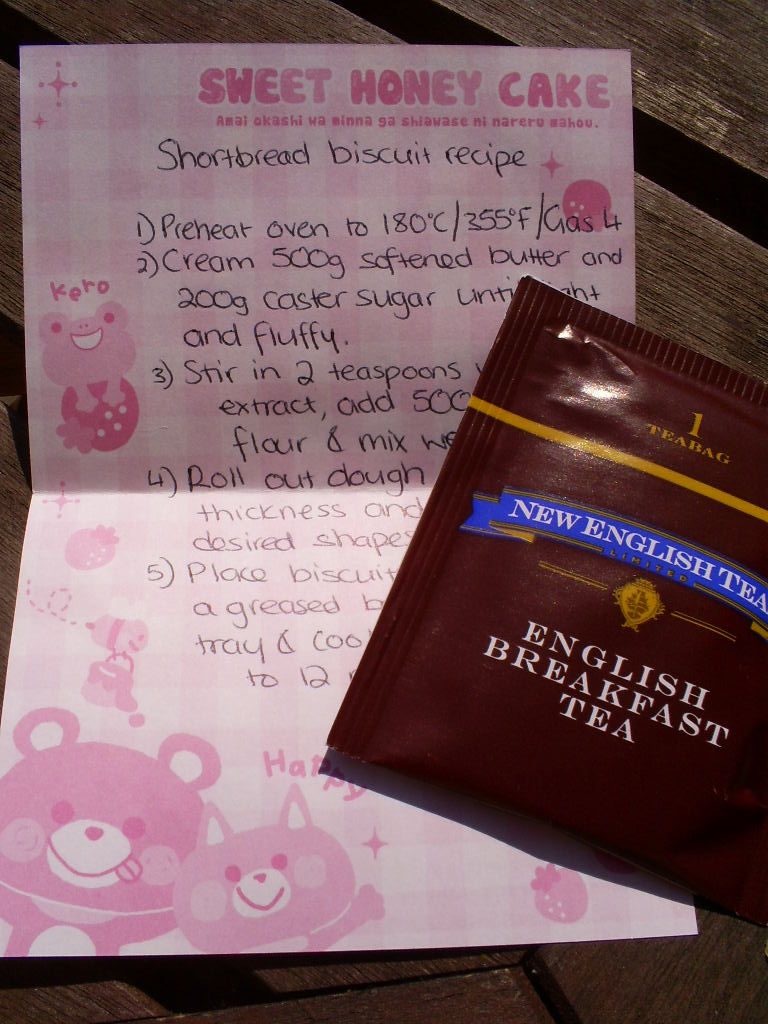 SWEET HONEY CAKE
Amai okashi wa minna ga shiawase ni nareru mahou.
Shortbread biscuit recipe
1) Preheat oven to 180°C/355°F/Gas 4
2) Cream 500g softened butter and
200g caster sugar
and fluffy.
3) Stir in 2 teaspoons
extract, add
flour & mix
4) Roll out dough
thickness and
desired shapes
5) Place
a greased
tray &
to 12
kero
Happy
1
TEABAG
NEW ENGLISH TEA
LIMITED
ENGLISH
BREAKFAST
TEA